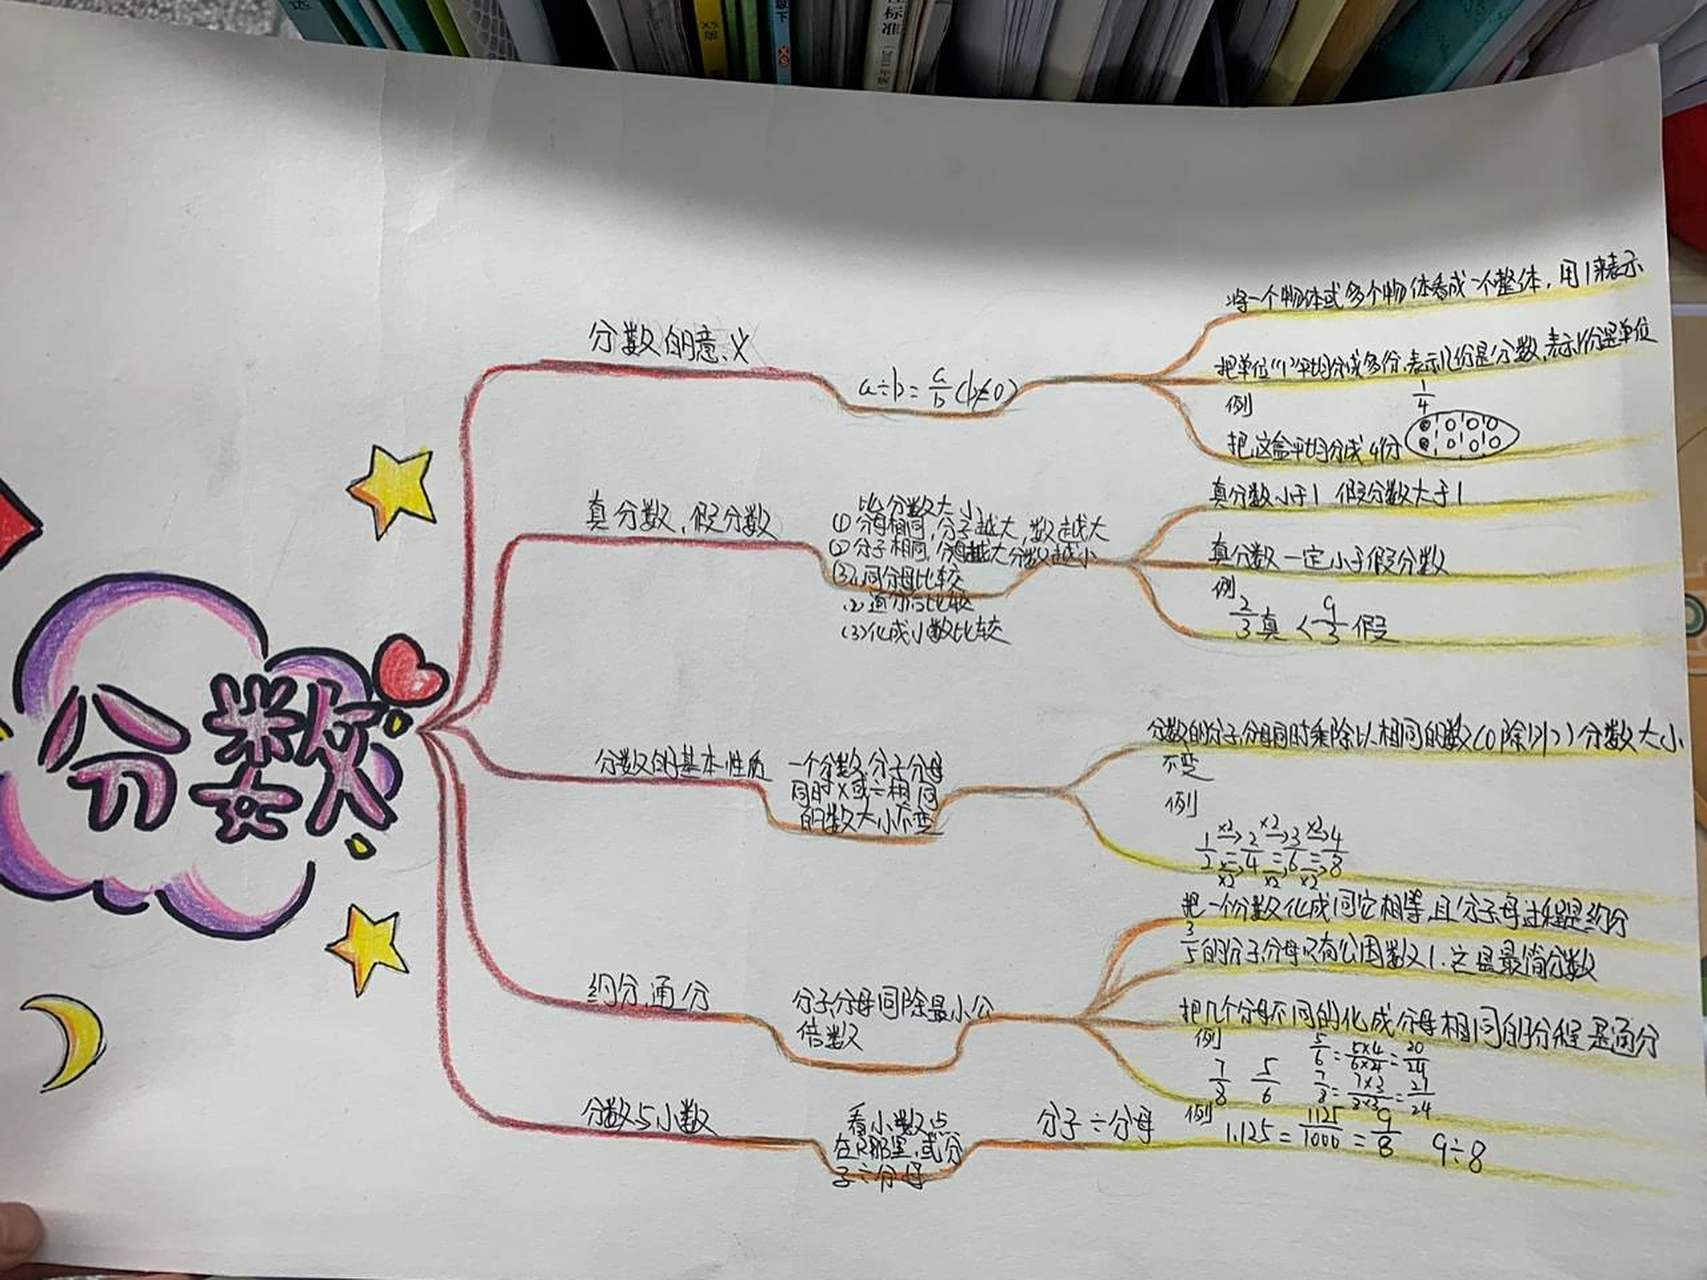 标准
分数
分数的意义
a÷b=a/b(b≠0)
将一个物体或多个物体看成一个整体，用1来表示
把单位“1”平均分成多份，表示几份是分数，表示1份是单位
例
1/4
把这盒平均分成4份
真分数，假分数
比分数大小
① 分母相同，分子越大，数越大
② 分子相同，分母越大分数越小
(3)1.同分母比较
(2)通分后比较
(3)化成小数比较
真分数小于1 假分数大于1
真分数一定小于假分数
例
2/3真 < 9/3假
分数的基本性质
一个分数，分子分母
同时×或÷相同
的数大小不变
分数的分子分母同时乘除以相同的数(0除外)分数大小
不变
例
×2 ×2 ×2
1/2=2/4=3/6=4/8
×2 ×2 ×2
约分，通分
分子分母同除最小公
倍数
把一个分数化成同它相等，且分子母过程是约分
3/5的分子分母只有公因数1.这是最简分数
把几个分母不同的化成分母相同的过程是通分
例
7/8 5/6
5/6=5×4/6×4=20/24
7/8=7×3/8×3=21/24
分数与小数
看小数点
在哪里，或分
子÷分母
分子÷分母
例
1.125=1125/1000=9/8 9÷8